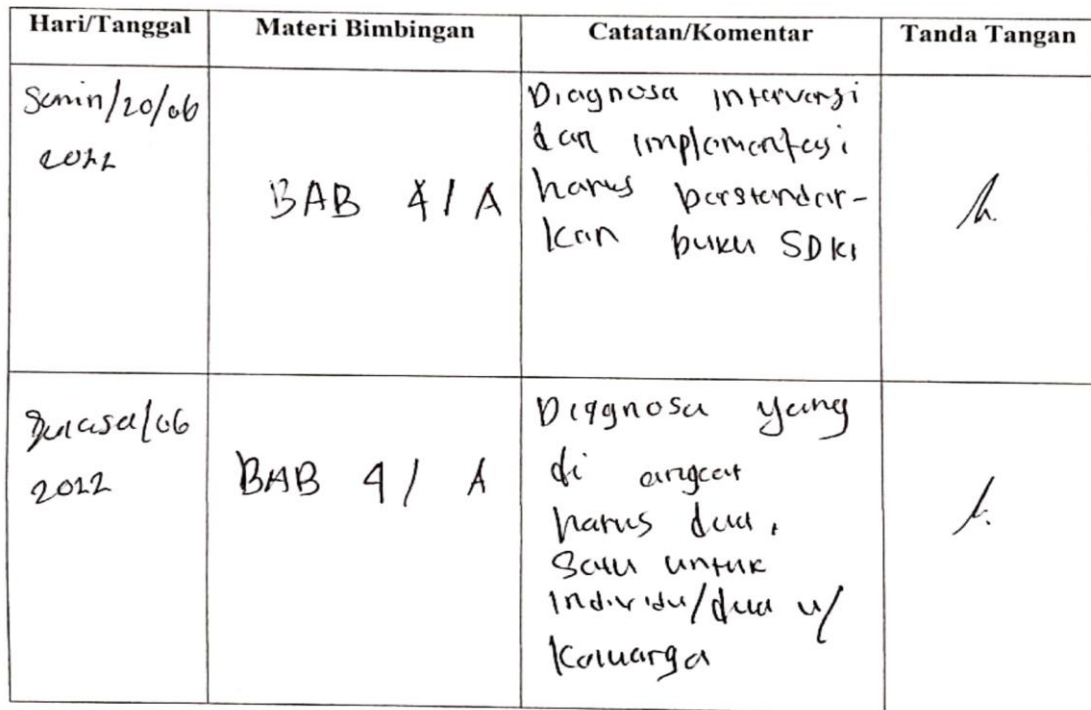 Hari/Tanggal Materi Bimbingan Catatan/Komentar Tanda Tangan
Senin/20/06
2022
BAB 4/A
Diagnosa intervensi
dan implementasi
harus berstandar-
kan buku SDKI
Selasa/06
2022
BAB 4/ A
Diagnosa yang
di angcat
harus dua,
Satu untuk
Individu/dua u/
Keluarga